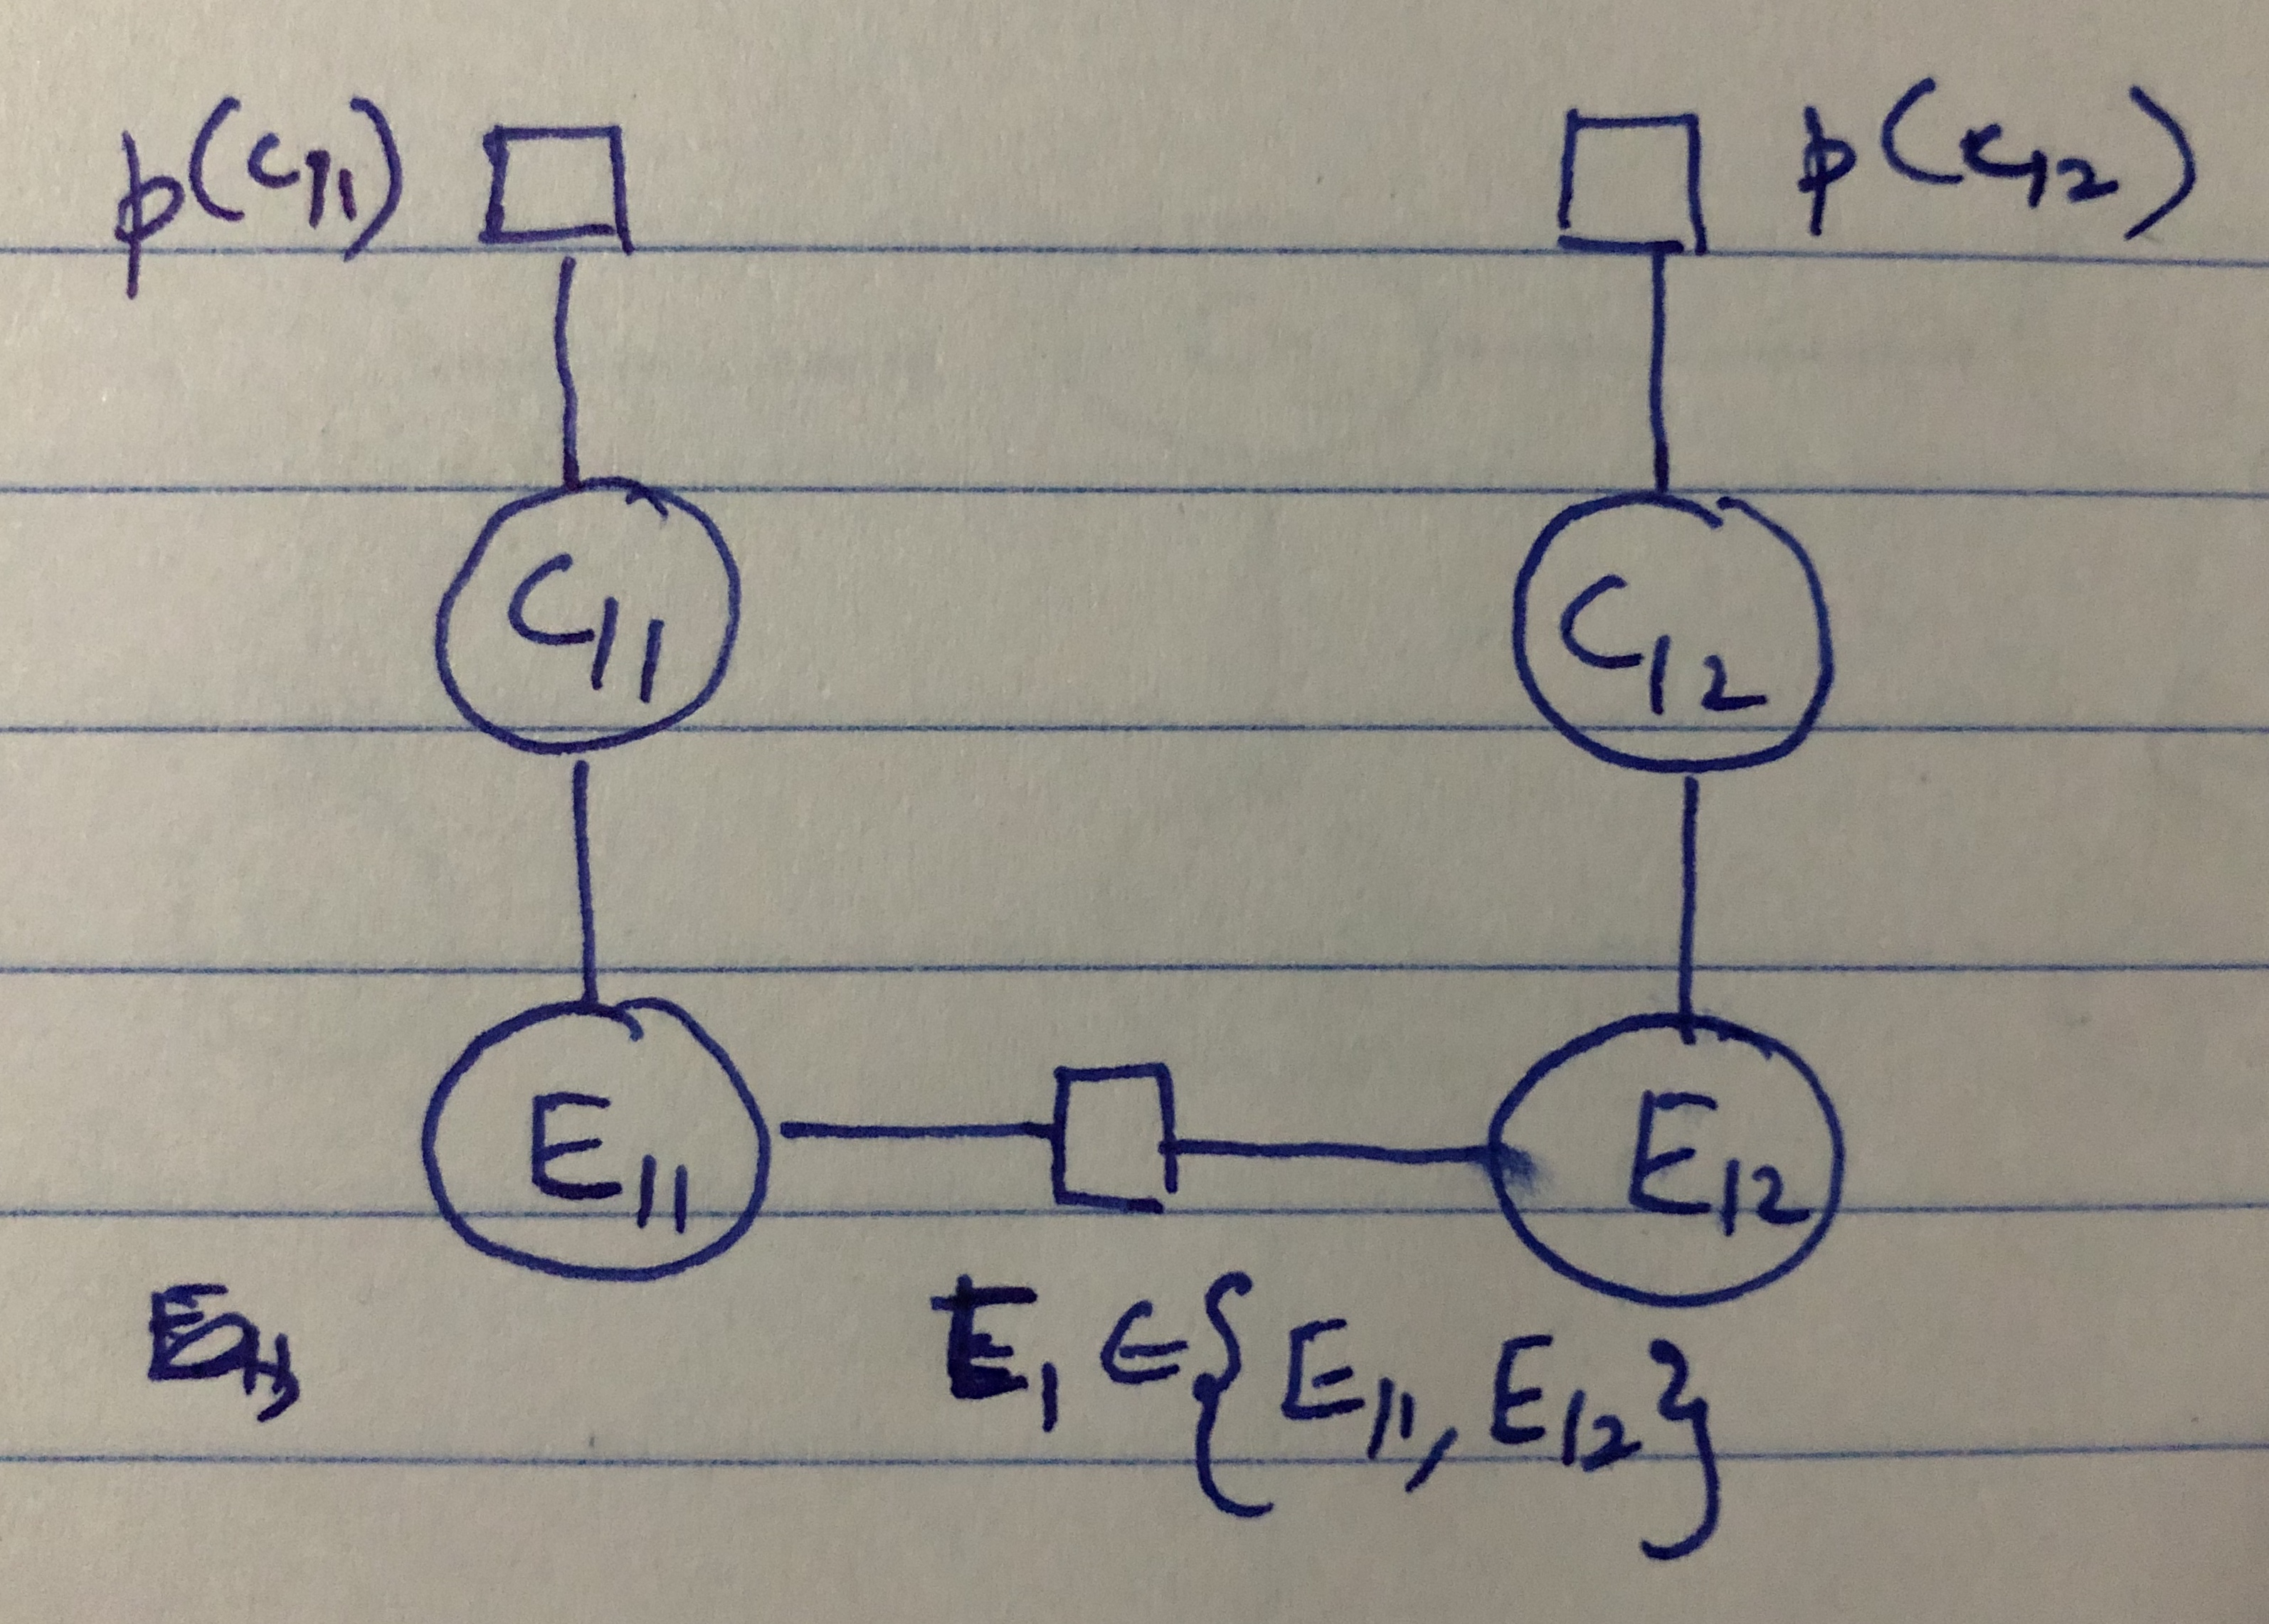 p(C₁₁) p(C₁₂)
C₁₁ C₁₂
E₁₁ E₁₂
E₁ ∈ {E₁₁, E₁₂}